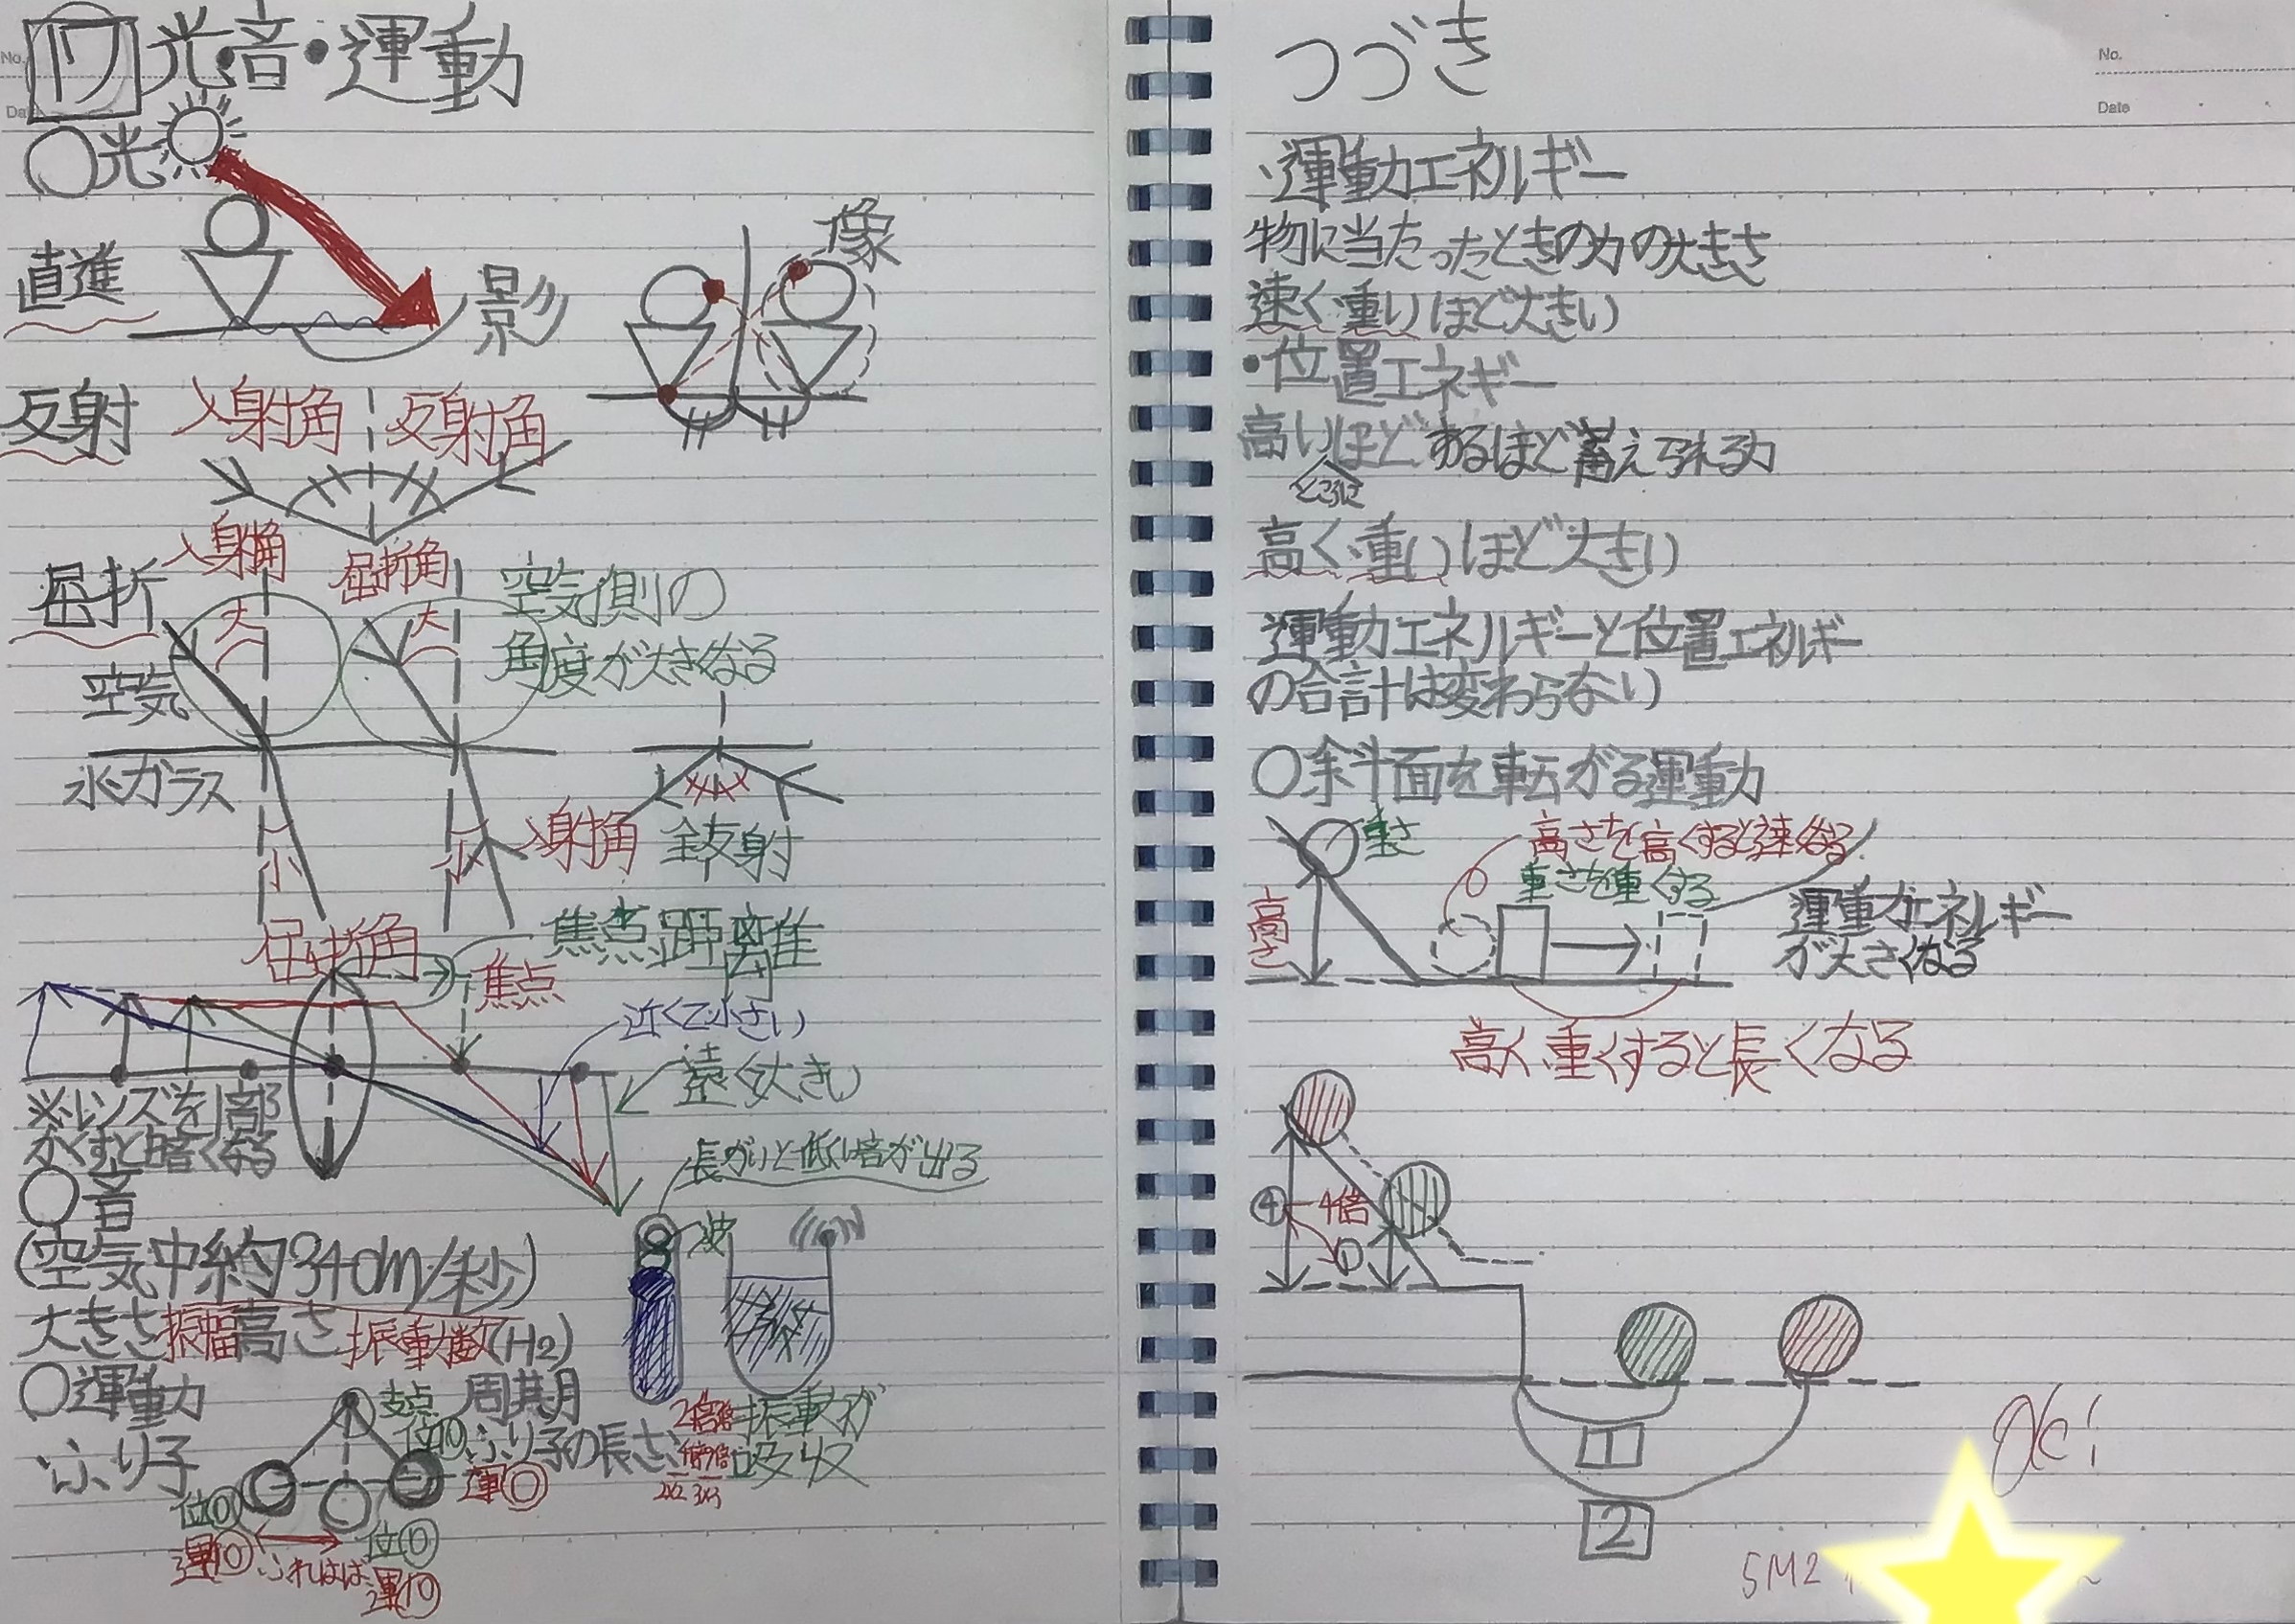 No.
Date
17 光・音・運動
○光
直進
影
像
反射 入射角 反射角
屈折 入射角 屈折角 空気側の
角度が大きくなる
大 大
空気
水・ガラス
小 小 入射角 全反射
屈折角 焦点距離
焦点
近くて小さい
遠く大きい
※レンズを1部
かくすと暗くなる
長がいと低い音が出る
○音
波
(空気中約340m/秒)
大きさ振幅高さ振動数(Hz)
○運動
支点 周期
ふり子 ふり子の長さ 2倍 3倍
4倍 9倍
2×2 3×3
振動が
吸収
位⑩
運⓪
位⓪
運⑩ ふれはば
位⑩
運⓪
つづき
No.
Date
・運動エネルギー
物に当たったときの力の大きさ
速く・重いほど大きい
・位置エネギー
高いほどあるほど蓄えられる力
ところに
高く・重いほど大きい
運動エネルギーと位置エネルギー
の合計は変わらない
○斜面を転がる運動
重さ
高さを高くすると速くなる
重さを重くする
高さ
運動エネルギー
が大きくなる
高く、重くすると長くなる
④ 4倍
①
1
2
OK!
5M2